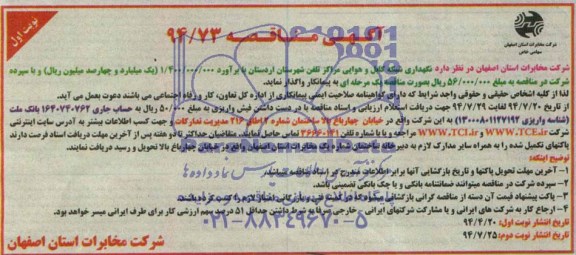 نوبت اول
آگهی مناقصه ۹۴/۷۳
شرکت مخابرات استان اصفهان
سهامی خاص
شرکت مخابرات استان اصفهان در نظر دارد نگهداری شبکه کابل و هوایی مراکز تلفن شهرستان اردستان با برآورد ۱/۴۰۰/۰۰۰/۰۰۰ (یک میلیارد و چهارصد میلیون ریال) و با سپرده
شرکت در مناقصه به مبلغ ۵۶/۰۰۰/۰۰۰ ریال بصورت مناقصه یک مرحله ای به پیمانکار واگذار نماید.
لذا از کلیه اشخاص حقیقی و حقوقی واجد شرایط که دارای گواهینامه صلاحیت ایمنی پیمانکاری از اداره کل تعاون، کار و رفاه اجتماعی می باشند دعوت بعمل می آید.
از تاریخ ۹۴/۷/۲۰ لغایت ۹۴/۷/۲۹ جهت دریافت استعلام ارزیابی و اسناد مناقصه با در دست داشتن فیش واریزی به مبلغ ۵۰/۰۰۰ ریال به حساب جاری ۱۶۴۰۷۴۰۷۶۲ بانک ملت
(شناسه واریزی ) به این شرکت واقع در خیابان چهارباغ بالا ساختمان شماره ۲ اطاق ۲۱۶ مدیریت تدارکات و جهت کسب اطلاعات بیشتر به آدرس سایت اینترنتی
شرکت WWW.TCE.ir و WWW.TCI.ir مراجعه و یا با شماره تلفن ۳۶۶۶۰۱۲۱ تماس حاصل نمایند. متقاضیان حداکثر تا دو هفته پس از آخرین مهلت دریافت اسناد فرصت دارند
پاکتهای تکمیل شده را به همراه سایر مدارک لازم به دبیرخانه ساختمان شماره یک مخابرات استان اصفهان واقع در خیابان چهارباغ بالا تحویل و رسید دریافت نمایند.
توضیح اینکه:
۱- آخرین مهلت تحویل پاکتها و تاریخ بازگشایی آنها برابر اطلاعات مندرج در اسناد مناقصه میباشد.
۲- سپرده شرکت در مناقصه میتواند ضمانتنامه بانکی و یا چک بانکی تضمینی باشد.
۳- پاکت پیشنهاد قیمت آن دسته از مناقصه گرانی بازگشایی
۴- ارجاع کار به شرکت های ایرانی و یا مشارکت شرکتهای ایرانی - خارجی صرفا به شرط داشتن حداقل ۵۱ درصد سهم ارزشی کار برای طرف ایرانی میسر خواهد بود.
تاریخ انتشار نوبت اول: ۹۴/۷/۲۰
تاریخ انتشار نوبت دوم: ۹۴/۷/۲۵
شرکت مخابرات استان اصفهان
۰۲۱-۸۸۳۴۹۶۷۰-۵